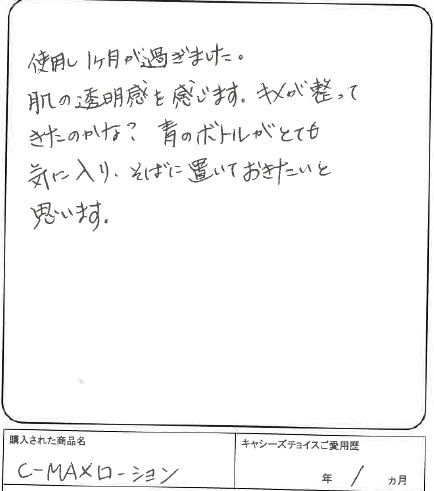 使用し1ヶ月が過ぎました。
肌の透明感を感じます。キメが整って
きたのかな？ 青のボトルがとても
気に入り、そばに置いておきたいと
思います。
購入された商品名
キャシーズチョイスご愛用歴
C-MAXローション
年 1 ヵ月